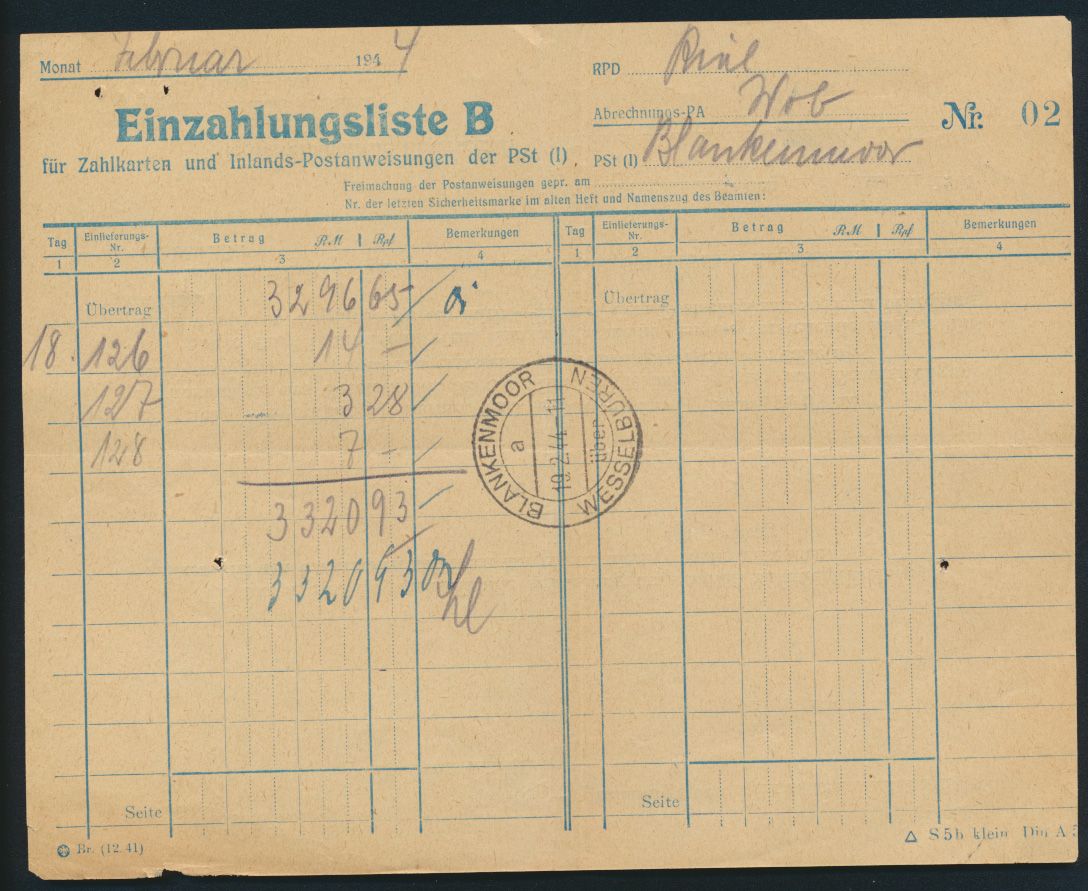 Monat Februar 1944
RPD Kiel
Einzahlungsliste B
für Zahlkarten und Inlands-Postanweisungen der PSt (I)
Abrechnungs-PA Wob
PSt (I) Blankenmoor
Nr. 02
Freimachung der Postanweisungen gepr. am
Nr. der letzten Sicherheitsmarke im alten Heft und Namenszug des Beamten:
Tag Einlieferungs-Nr. Betrag RM Rpf Bemerkungen Tag Einlieferungs-Nr. Betrag RM Rpf Bemerkungen
1 2 3 4 1 2 3 4
Übertrag 3296 65 Übertrag
18. 126 14 -
127 3 28
128 7 -
3320 93
3320 93
BLANKENMOOR
über
WESSELBUREN
a
19.2.44-11
Seite Seite
Br. (12. 41)
S 5h klein Din A 5